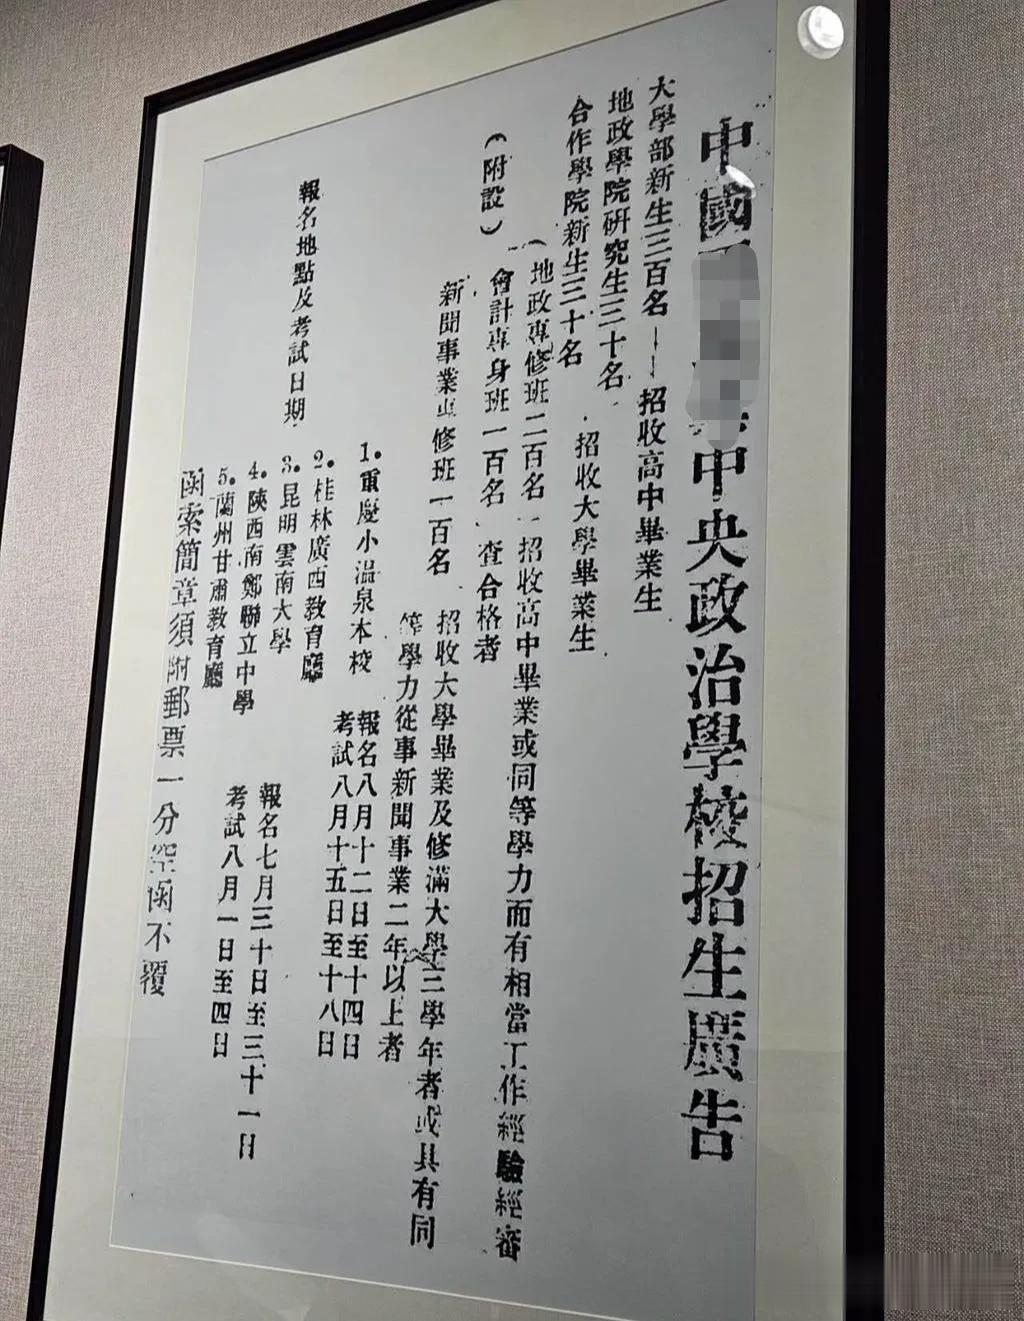 中國中央政治學校招生廣告
大學部新生三百名——招收高中畢業生
地政學院研究生三十名
合作學院新生三十名
招收大學畢業生
(附設)
地政專修班二百名
會計專身班一百名
招收高中畢業或同等學力而有相當工作經驗經審
查合格者
新聞事業專修班一百名
招收大學畢業及修滿大學三學年者或具有同
等學力從事新聞事業二年以上者
報名地點及考試日期
1.重慶小溫泉本校
報名八月十二日至十四日
考試八月十五日至十八日
2.桂林廣西教育廳
3.昆明雲南大學
4.陝西南鄭聯立中學
5.蘭州甘肅教育廳
報名七月三十日至三十一日
考試八月一日至四日
函索簡章須附郵票一分空函不覆